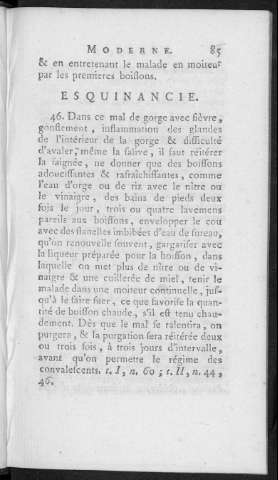 MODERNE. 85
& en entretenant le malade en moiteur
par les premieres boissons.
ESQUINANCIE.
46. Dans ce mal de gorge avec fièvre,
gonflement, inflammation des glandes
de l'intérieur de la gorge & difficulté
d'avaler, même la salive, il faut réitérer
la saignée, ne donner que des boissons
adoucissantes & rafraîchissantes, comme
l'eau d'orge ou de riz avec le nître ou
le vinaigre, des bains de pieds deux
fois le jour, trois ou quatre lavemens
pareils aux boissons, envelopper le cou
avec des flanelles imbibées d'eau de sureau,
qu'on renouvelle souvent, gargariser avec
la liqueur préparée pour la boisson, dans
laquelle on met plus de nître ou de vi-
naigre & une cuillerée de miel, tenir le
malade dans une moiteur continuelle, jus-
qu'à le faire suer, ce que favorise la quan-
tité de boisson chaude, s'il est tenu chau-
dement. Dès que le mal se ralentira, on
purgera, & la purgation sera réitérée deux
ou trois fois, à trois jours d'intervalle,
avant qu'on permette le régime des
convalescents. t. I, n. 60; t. II, n. 44,
46.